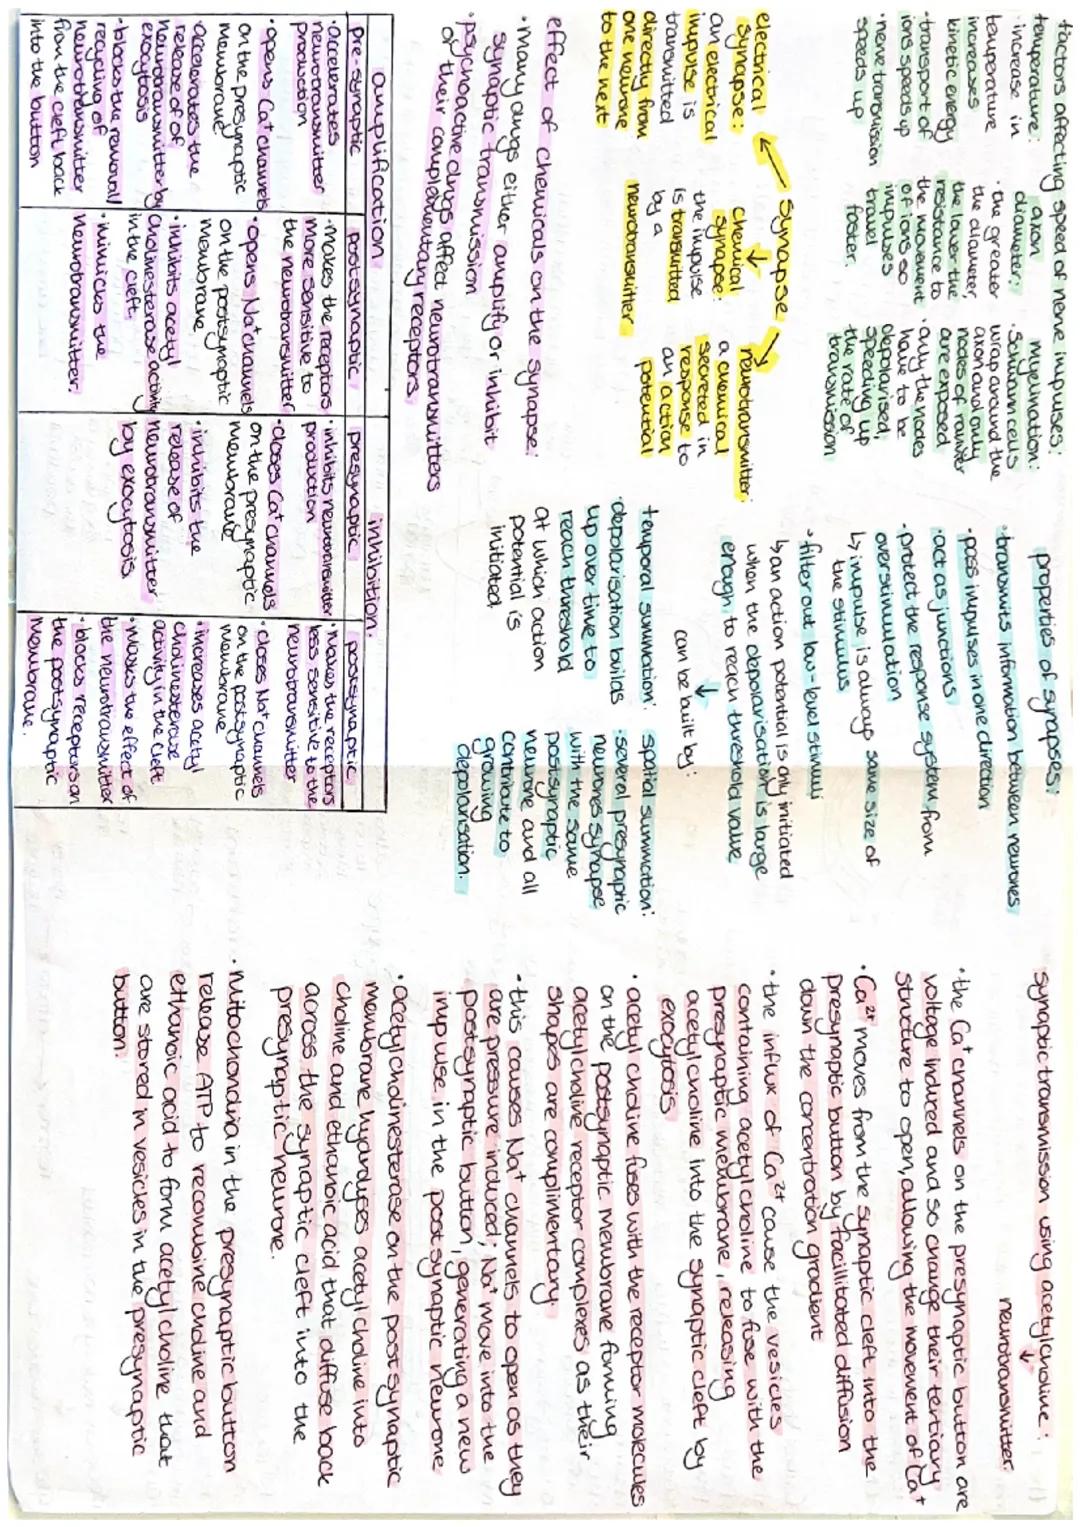 factors affecting speed of nerve impulses:
temperature:
· increase in
temperature
increases
kinetic energy
· transport of
ions speeds up
· nerve transmission
speeds up
axon
diameter:
· the greater
the diameter,
the lower the
resistance to
the movement
of ions so
impulses
travel
faster.
myelination:
· Schwann cells
wrap around the
axon and only
nodes of ranvier
are exposed
· only the nodes
have to be
depolarised,
speeding up
the rate of
transmission
synapse
electrical
synapse:
an electrical
impulse is
transmitted
directly from
one neurone
to the next
chemical
synapse:
the impulse
is transmitted
by a
neurotransmitter
neurotransmitter:
a chemical
secreted in
response to
an action
potential
effect of chemicals on the synapse:
· many drugs either amplify or inhibit
synaptic transmission
· psychoactive drugs affect neurotransmitters
of their complementary receptors.
amplification
inhibition.
pre-synaptic
· accelerates
neurotransmitter
production
· opens Ca⁺ channels
on the presynaptic
membrane
· accelerates the
release of of
neurotransmitter by
exocytosis
· blocks the removal/
recycling of
neurotransmitter
from the cleft back
into the button
postsynaptic
· makes the receptors
more sensitive to
the neurotransmitter
· opens Na⁺ channels
on the postsynaptic
membrane
· inhibits acetyl
cholinesterase activity
in the cleft
· mimicks the
neurotransmitter.
presynaptic
· inhibits neurotransmitter
production
· closes Ca⁺ channels
on the presynaptic
membrane
· inhibits the
release of
neurotransmitter
by exocytosis
postsynaptic
· makes the receptors
less sensitive to the
neurotransmitter
· closes Na⁺ channels
on the postsynaptic
membrane
· increases acetyl
cholinesterase
activity in the cleft
· masks the effect of
the neurotransmitter
· blocks receptors on
the postsynaptic
membrane.
properties of synapses:
· transmits information between neurones
· pass impulses in one direction
· act as junctions
· protect the response system from
overstimulation
↳ impulse is always same size of
the stimulus
· filter out low-level stimuli
↳ an action potential is only initiated
when the depolarisation is large
enough to reach threshold value
↓
can be built by:
temporal summation:
· depolarisation builds
up over time to
reach threshold
at which action
potential is
initiated
spatial summation:
· several presynaptic
neurones synapse
with the same
postsynaptic
neurone and all
contribute to
growing
depolarisation.
synaptic transmission using acetylcholine:
↓
neurotransmitter
· the Ca⁺ channels on the presynaptic button are
voltage induced and so change their tertiary
structure to open, allowing the movement of Ca⁺
· Ca²⁺ moves from the synaptic cleft into the
presynaptic button by facillitated diffusion
down the concentration gradient
· the influx of Ca²⁺ cause the vesicles
containing acetylcholine to fuse with the
presynaptic membrane, releasing
acetylcholine into the synaptic cleft by
exocytosis
· acetylcholine fuses with the receptor molecules
on the postsynaptic membrane forming
acetylcholine receptor complexes as their
shapes are complimentary.
· this causes Na⁺ channels to open as they
are pressure induced; Na⁺ move into the
postsynaptic button, generating a new
impulse in the postsynaptic neurone
· acetylcholinesterase on the postsynaptic
membrane hydrolyses acetylcholine into
choline and ethanoic acid that diffuse back
across the synaptic cleft into the
presynaptic neurone.
· Mitochondria in the presynaptic button
release ATP to recombine choline and
ethanoic acid to form acetylcholine that
are stored in vesicles in the presynaptic
button.